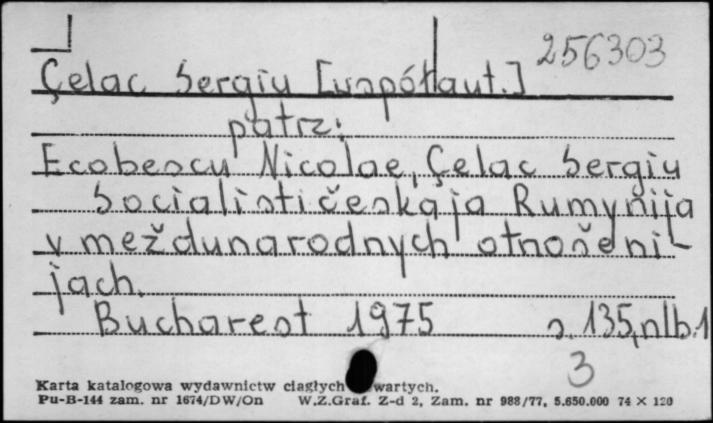 256303
Çelac Sergiu [współaut.]
patrz:
Ecobescu Nicolae, Çelac Sergiu
Socialističeskaja Rumynija
v meždunarodnych otnošeni-
jach.
Bucharest 1975 s. 135, nlb. 1
3
Karta katalogowa wydawnictw ciągłych wartych.
Pu-B-144 zam. nr 1674/DW/On W.Z.Graf. Z-d 2, Zam. nr 988/77, 5.650.000 74 × 120